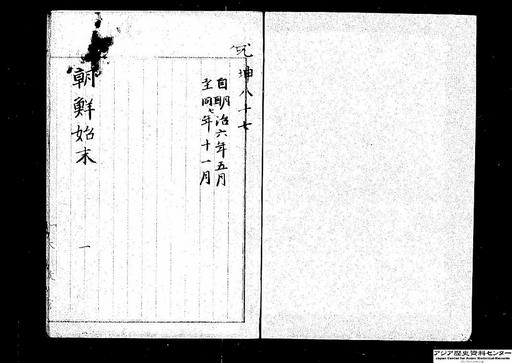 坤八十七
自明治六年五月
至同七年十一月
朝鮮始末
一
アジア歴史資料センター
Japan Center for Asian Historical Records